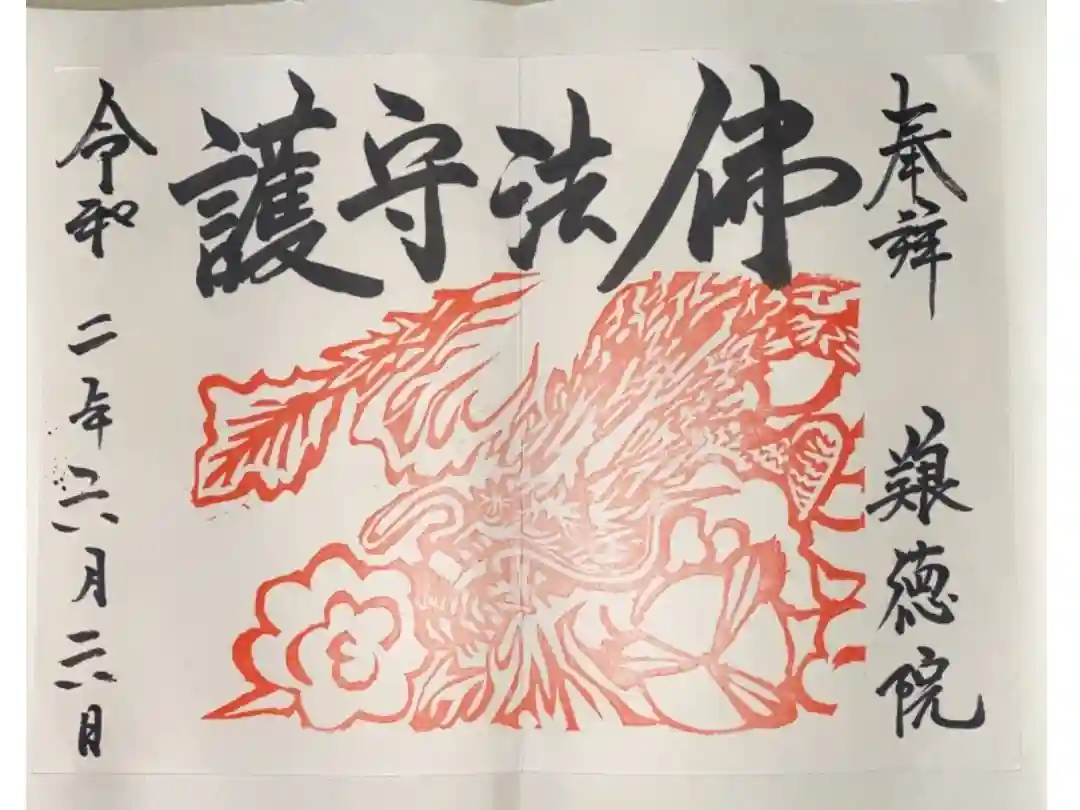 奉拝
艱徳院
佛法守護
令和二年六月二六日